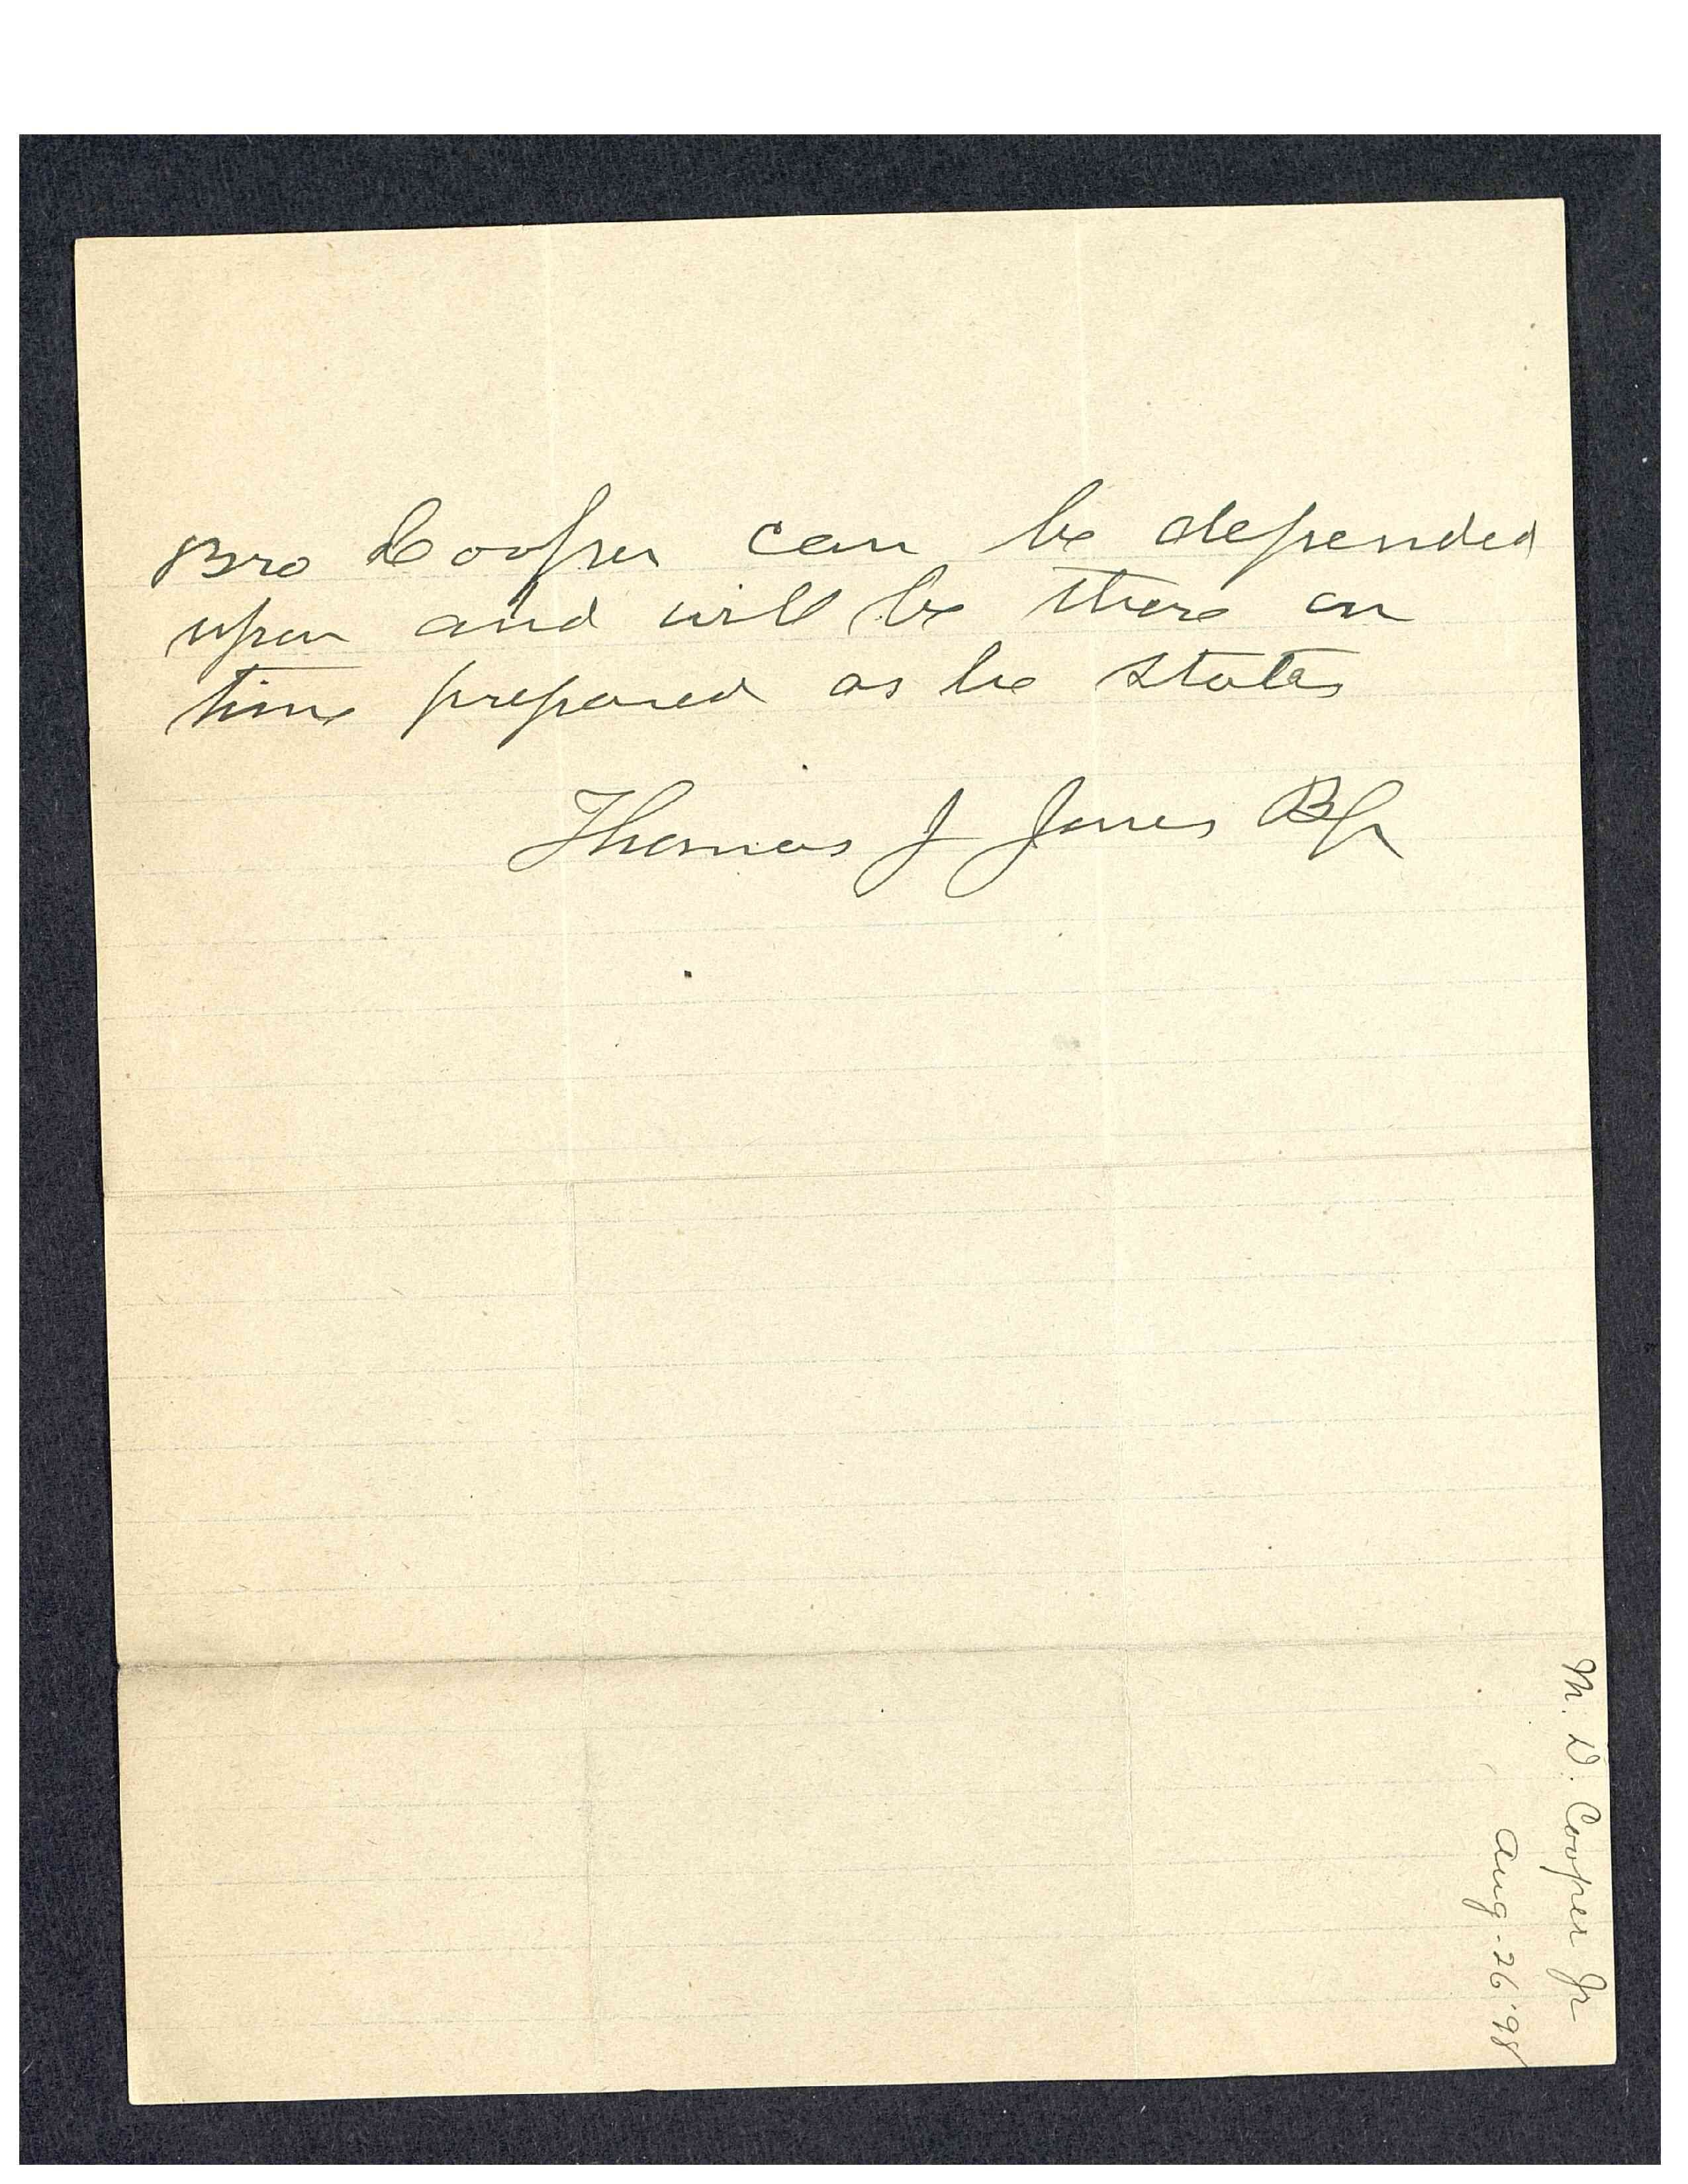 Bro Cooper can be depended
upon and will be there on
time prepared as he states
Thomas J Jones Bp
M. D. Cooper Jr
Aug-26 '98